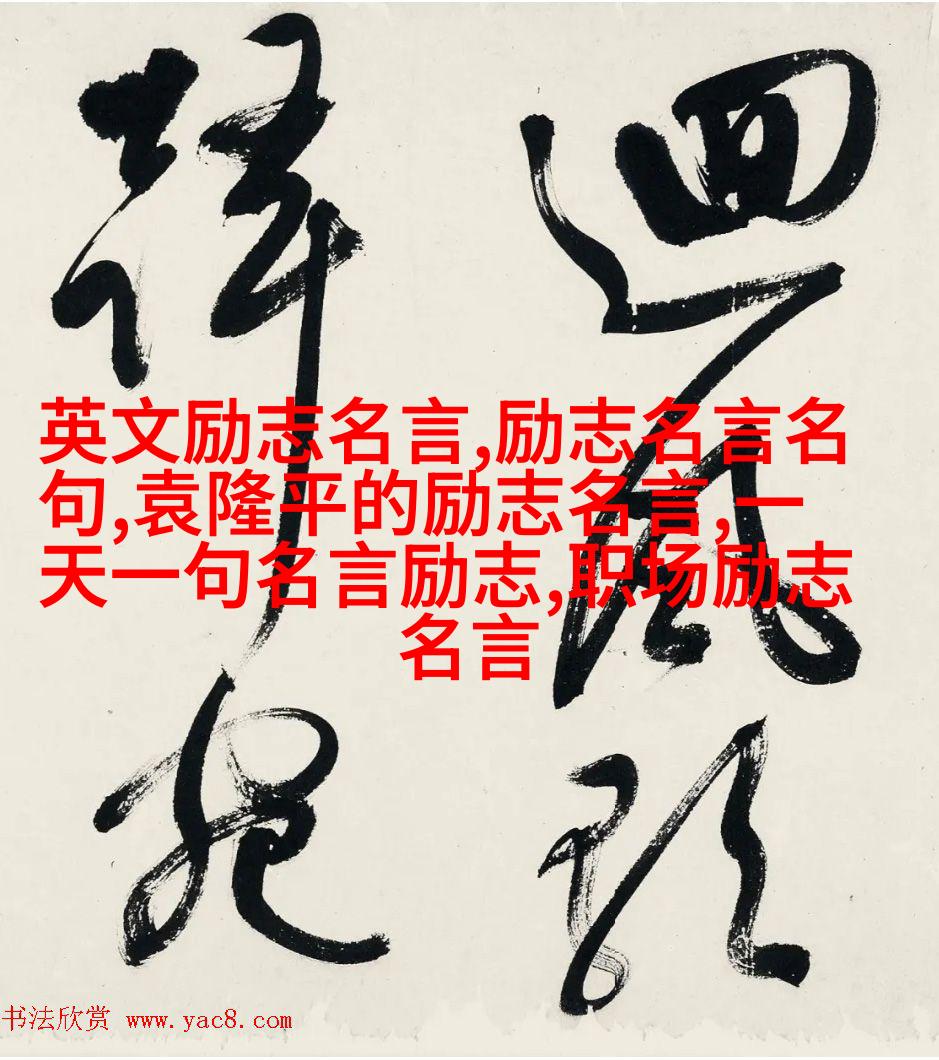 迴風
英文励志名言,励志名言名
句,袁隆平的励志名言,一
天一句名言励志,职场励志
名言
书法欣赏 www.yac8.com